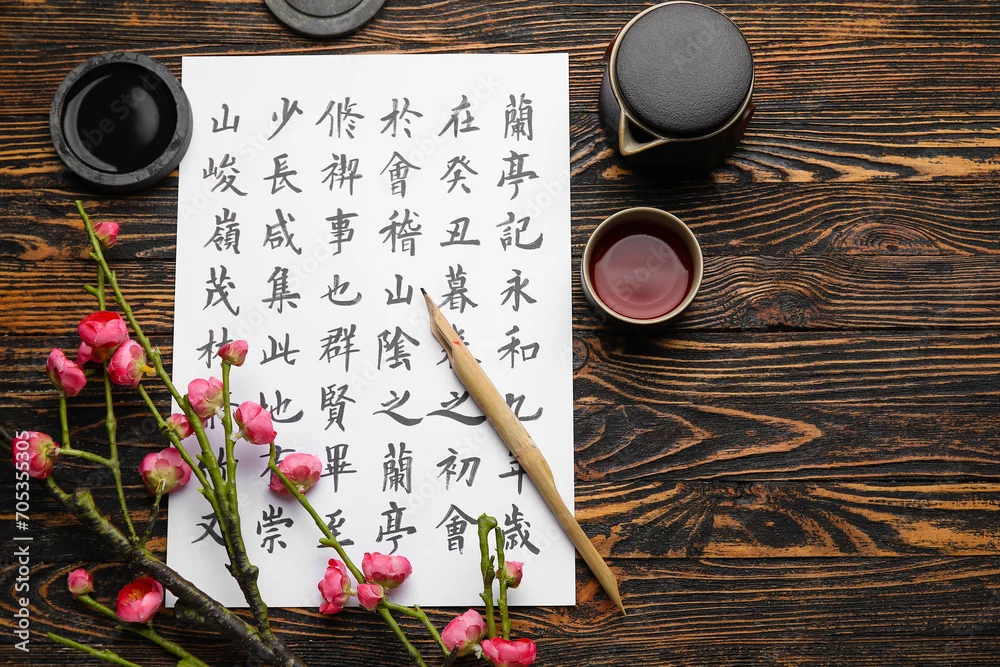 蘭亭記永和九年歲
在癸丑暮春之初會
於會稽山陰之蘭亭
修禊事也群賢畢至
少長咸集此地有崇
山峻嶺茂林
Adobe Stock | #705355305
Adobe Stock